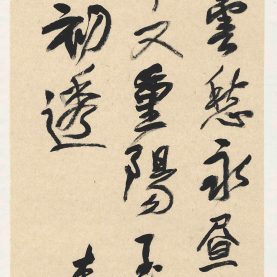 雲愁永昼
又重陽
初透